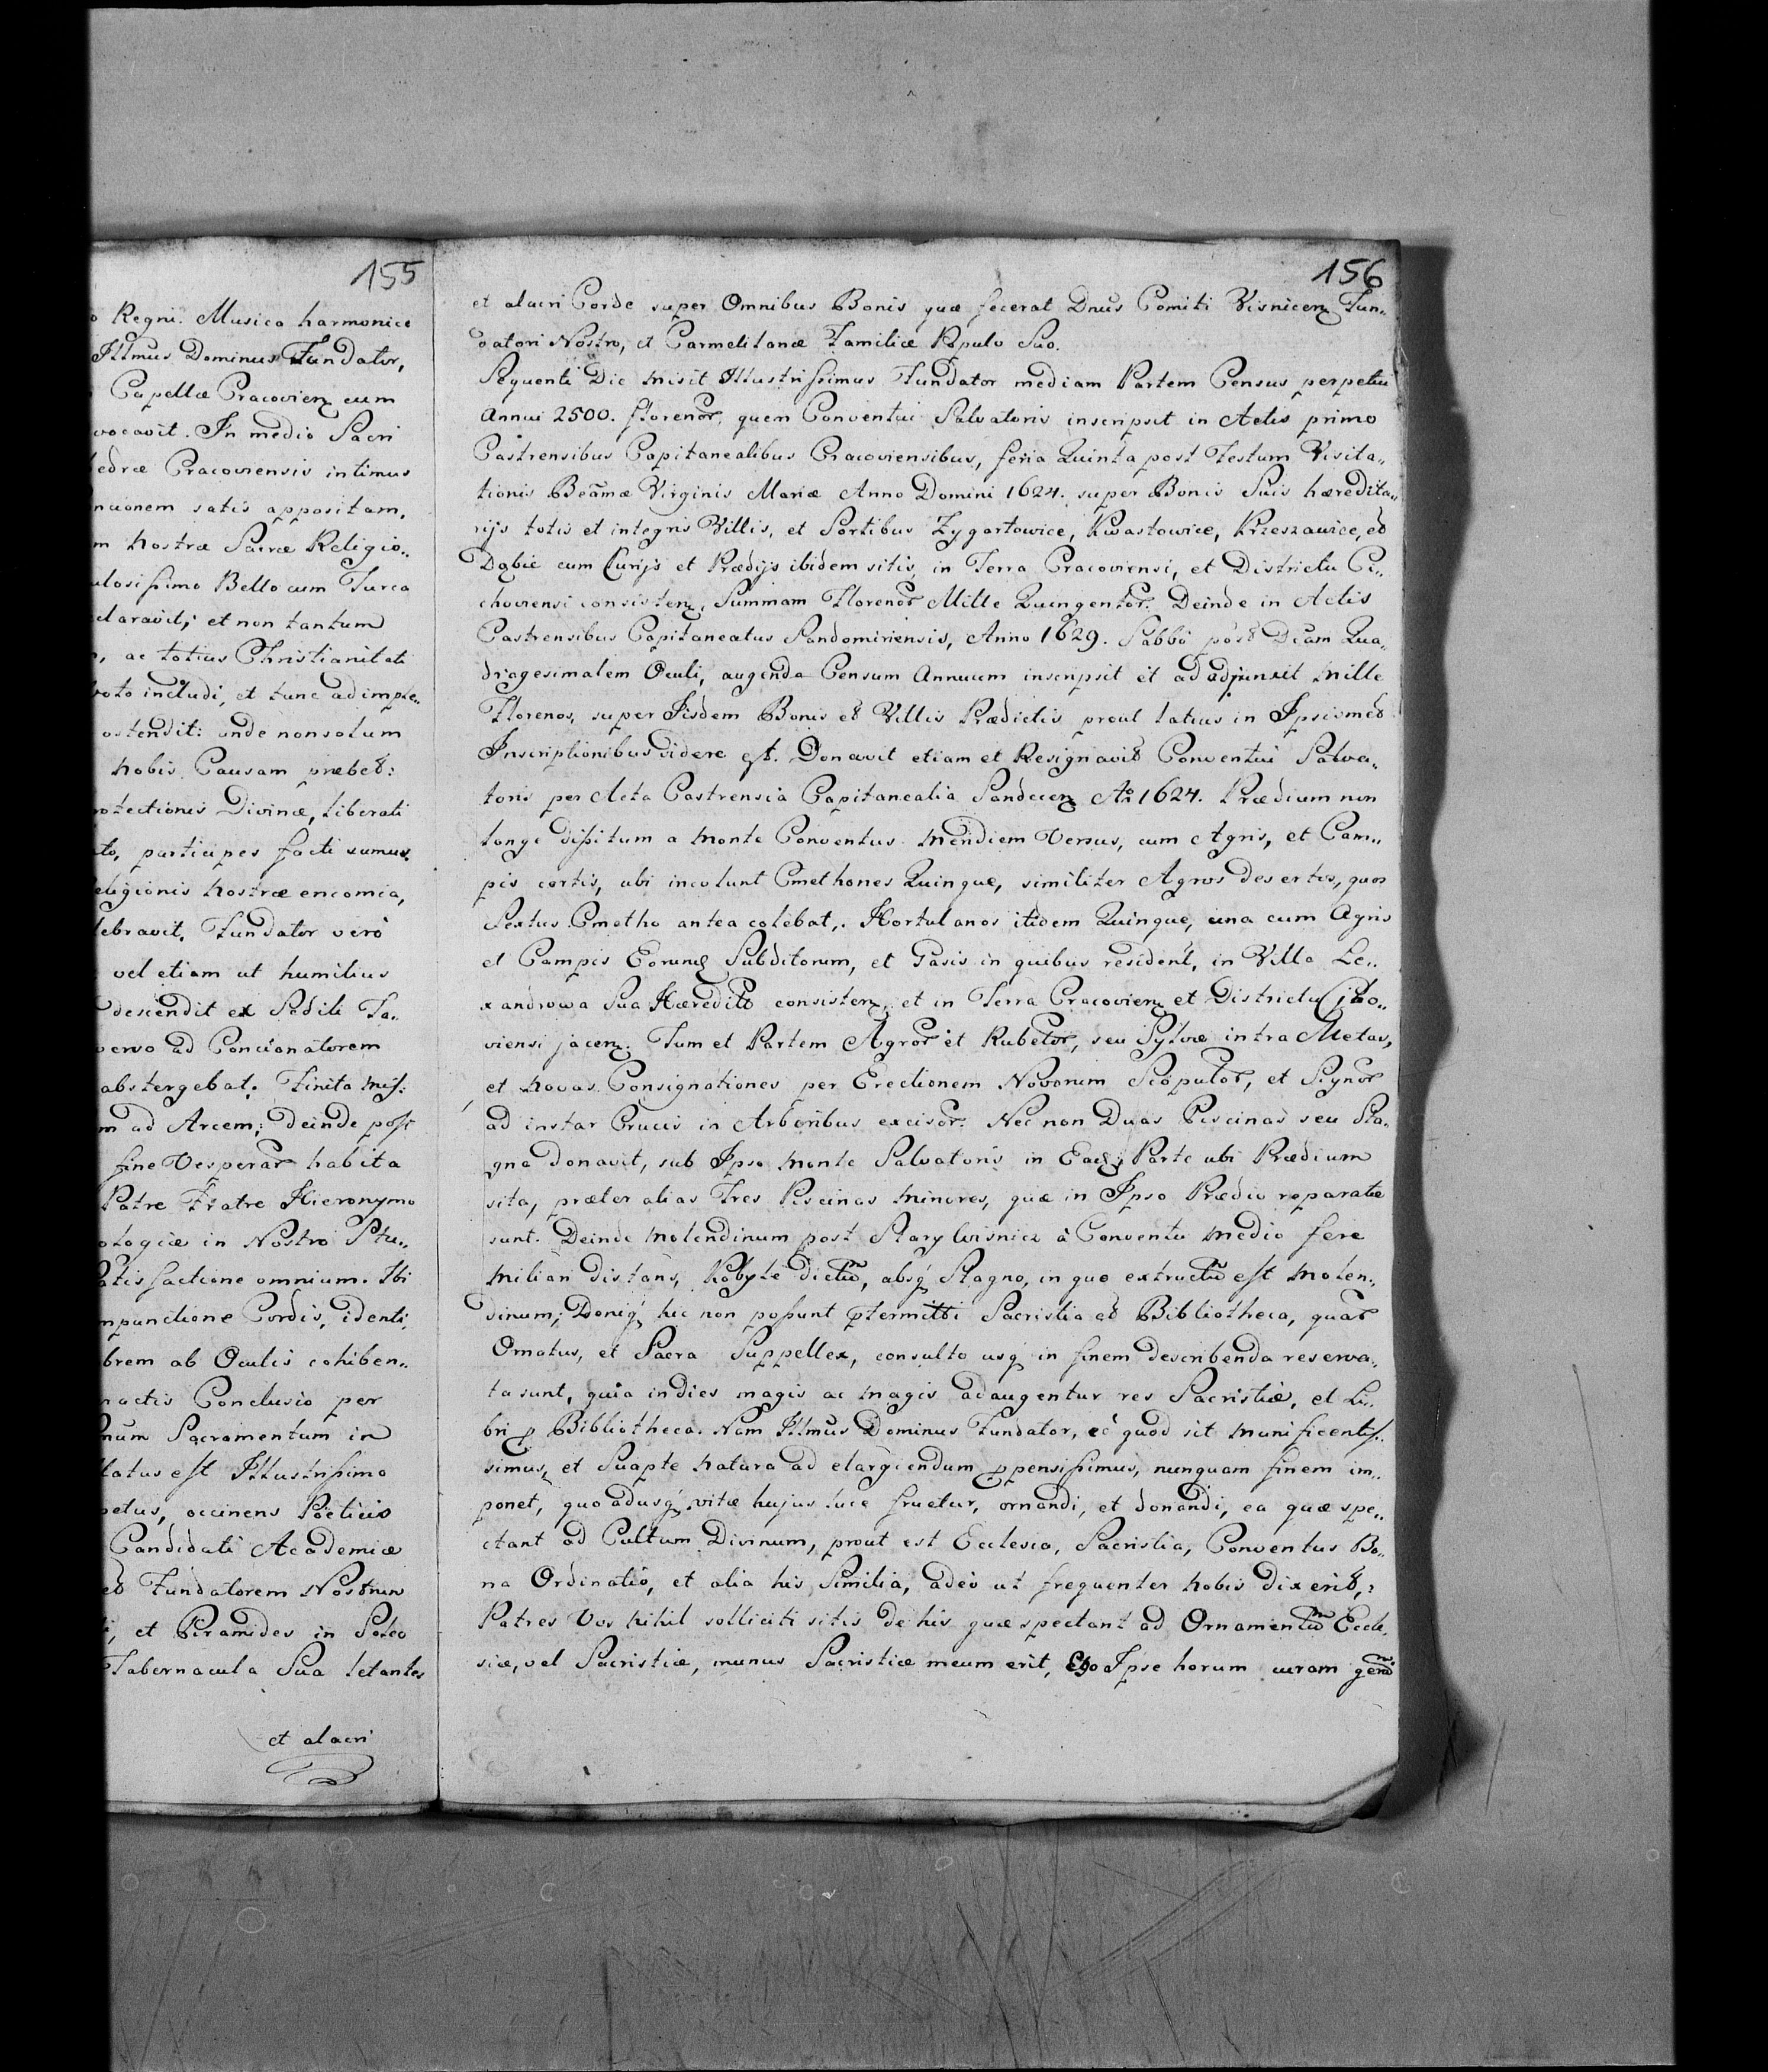 155
o Regni. Musica harmonice
Illmus Dominus Fundator,
Capellæ Cracovien cum
vocavit. In medio Sacri
hedræ Cracoviensis intimus
ncionem satis appositam,
m nostræ Sacræ Religio„
ulosissimo Bello cum Turca
claravit; et non tantum
, ac totius Christianitati
voto includi, et tunc adimple„
ostendit: unde non solum
nobis Causam præbet:
rotectionis Divinæ, liberati
to, participes facti sumus.
eligionis nostræ encomia,
lebravit. Fundator verò
vel etiam ut humilius
descendit ex Sedili Ta„
verso ad Concionatorem
abstergebat. Finita Miss:
m ad Arcem; deinde post
fine Vesperar habita
Patre Fratre Hieronymo
ologiæ in Nostro Stu„
atisfactione omnium. Ibi
mpunctione Cordis, identi,
brem ab Oculis cohiben„
ractis Conclusio per
num Sacramentum in
latus est Illustrissimo
petus, occinens Poëticis
Candidati Academiæ
et Fundatorem Nostrum
i, et Piramides in Soleo
Tabernacula Sua letantes
et alacri
156
et alacri Corde super Omnibus Bonis quæ fecerat Dnus Comiti Visnicen Fun„
datori Nostro, et Carmelitanæ Familiæ Populo Suo.
Sequenti Die misit Illustrissimus Fundator mediam Partem Census perpetui
Annui 2500. florenor, quem Conventui Salvatoris inscripsit in Actis primo
Castrensibus Capitanealibus Cracoviensibus, feria Quinta post Festum Visita„
tionis Beãmæ Virginis Mariæ Anno Domini 1624. super Bonis Suis hæredita„
rijs totis et integris Villis, et Sortibus Zygartowice, Kwastowice, Krzeszawice, et
Dąbie cum Curijs et Prædijs ibidem sitis, in Terra Cracoviensi, et Districtu Ci„
choviensi consisten, Summam Florenor Mille Quingentor. Deinde in Actis
Castrensibus Capitaneatus Sandomiriensis, Anno 1629. Sabbo post Dcam Qua„
dragesimalem Oculi, augendo Censum Annuum inscripsit et ad adjunxit mille
Florenos, super Iisdem Bonis et Villis Prædictis prout latius in Ipsismet
Inscriptionibus videre est. Donavit etiam et Resignavit Conventui Salva„
toris per Acta Castrensia Capitanealia Sandecen Aõ 1624. Prædium non
longe dissitum a monte Conventus Meridiem Versus, cum Agris, et Cam„
pis certis, ubi incolunt Cmethones Quinque, similiter Agros desertos, quos
Sextus Cmetho antea colebat,. Hortulanos itidem Quinque, una cum Agris
et Campis Eorund Subditorum, et Casis in quibus resident, in Villa Le„
xandrowa Sua Hæredit consisten, et in Terra Cracovien et Districtu Cicho„
viensi jacen. Tum et Partem Agror et Rubetor, seu Sylvæ intra Metas,
et novas Consignationes per Erectionem Novorum Scopulor, et Signor
ad instar Crucis in Arboribus excisor. Nec non Duas Piscinas seu Sta„
gna donavit, sub Ipso monte Salvatoris in Ead Parte ubi Prædium
sita, præter alias Tres Piscinas minores, quæ in Ipso Prædio reparatæ
sunt. Deinde molendinum post Stary Wisnicz à Conventu medio fere
miliari distans, Kobyle dictũ, absq Stagno, in quo extructũ est molen„
dinum; Deniq hic non possunt ptermitti Sacristia et Bibliotheca, quar
Ornatus, et Sacra Suppellex, consulto usq in finem describenda reserva„
ta sunt, quia indies magis ac magis adaugentur res Sacristiæ, et Li„
bri p Bibliotheca. Nam Illmus Dominus Fundator, eò quod sit munificentis„
simus, et Suapte natura ad elargiendum ppensissimus, nunquam finem im„
ponet, quo adusq vitæ hujus luce fruetur, ornandi, et donandi, ea quæ spe„
ctant ad Cultum Divinum, prout est Ecclesia, Sacristia, Conventus Bo„
na Ordinatio, et alia his Similia, adeò ut frequenter nobis dixerit,:
Patres Vos nihil solliciti sitis de his quæ spectant ad Ornamentũ Eccle„
siæ, vel Sacristiæ, munus Sacristiæ meum erit, Ego Ipse horum curam